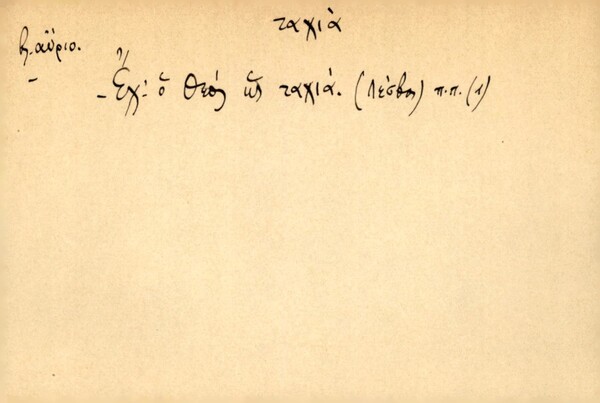 ταχιὰ
βλ. αὔριο.
- Ἔχ' ὁ Θεὸς κὶ ταχιὰ. (Λέσβος) π.π. (1)